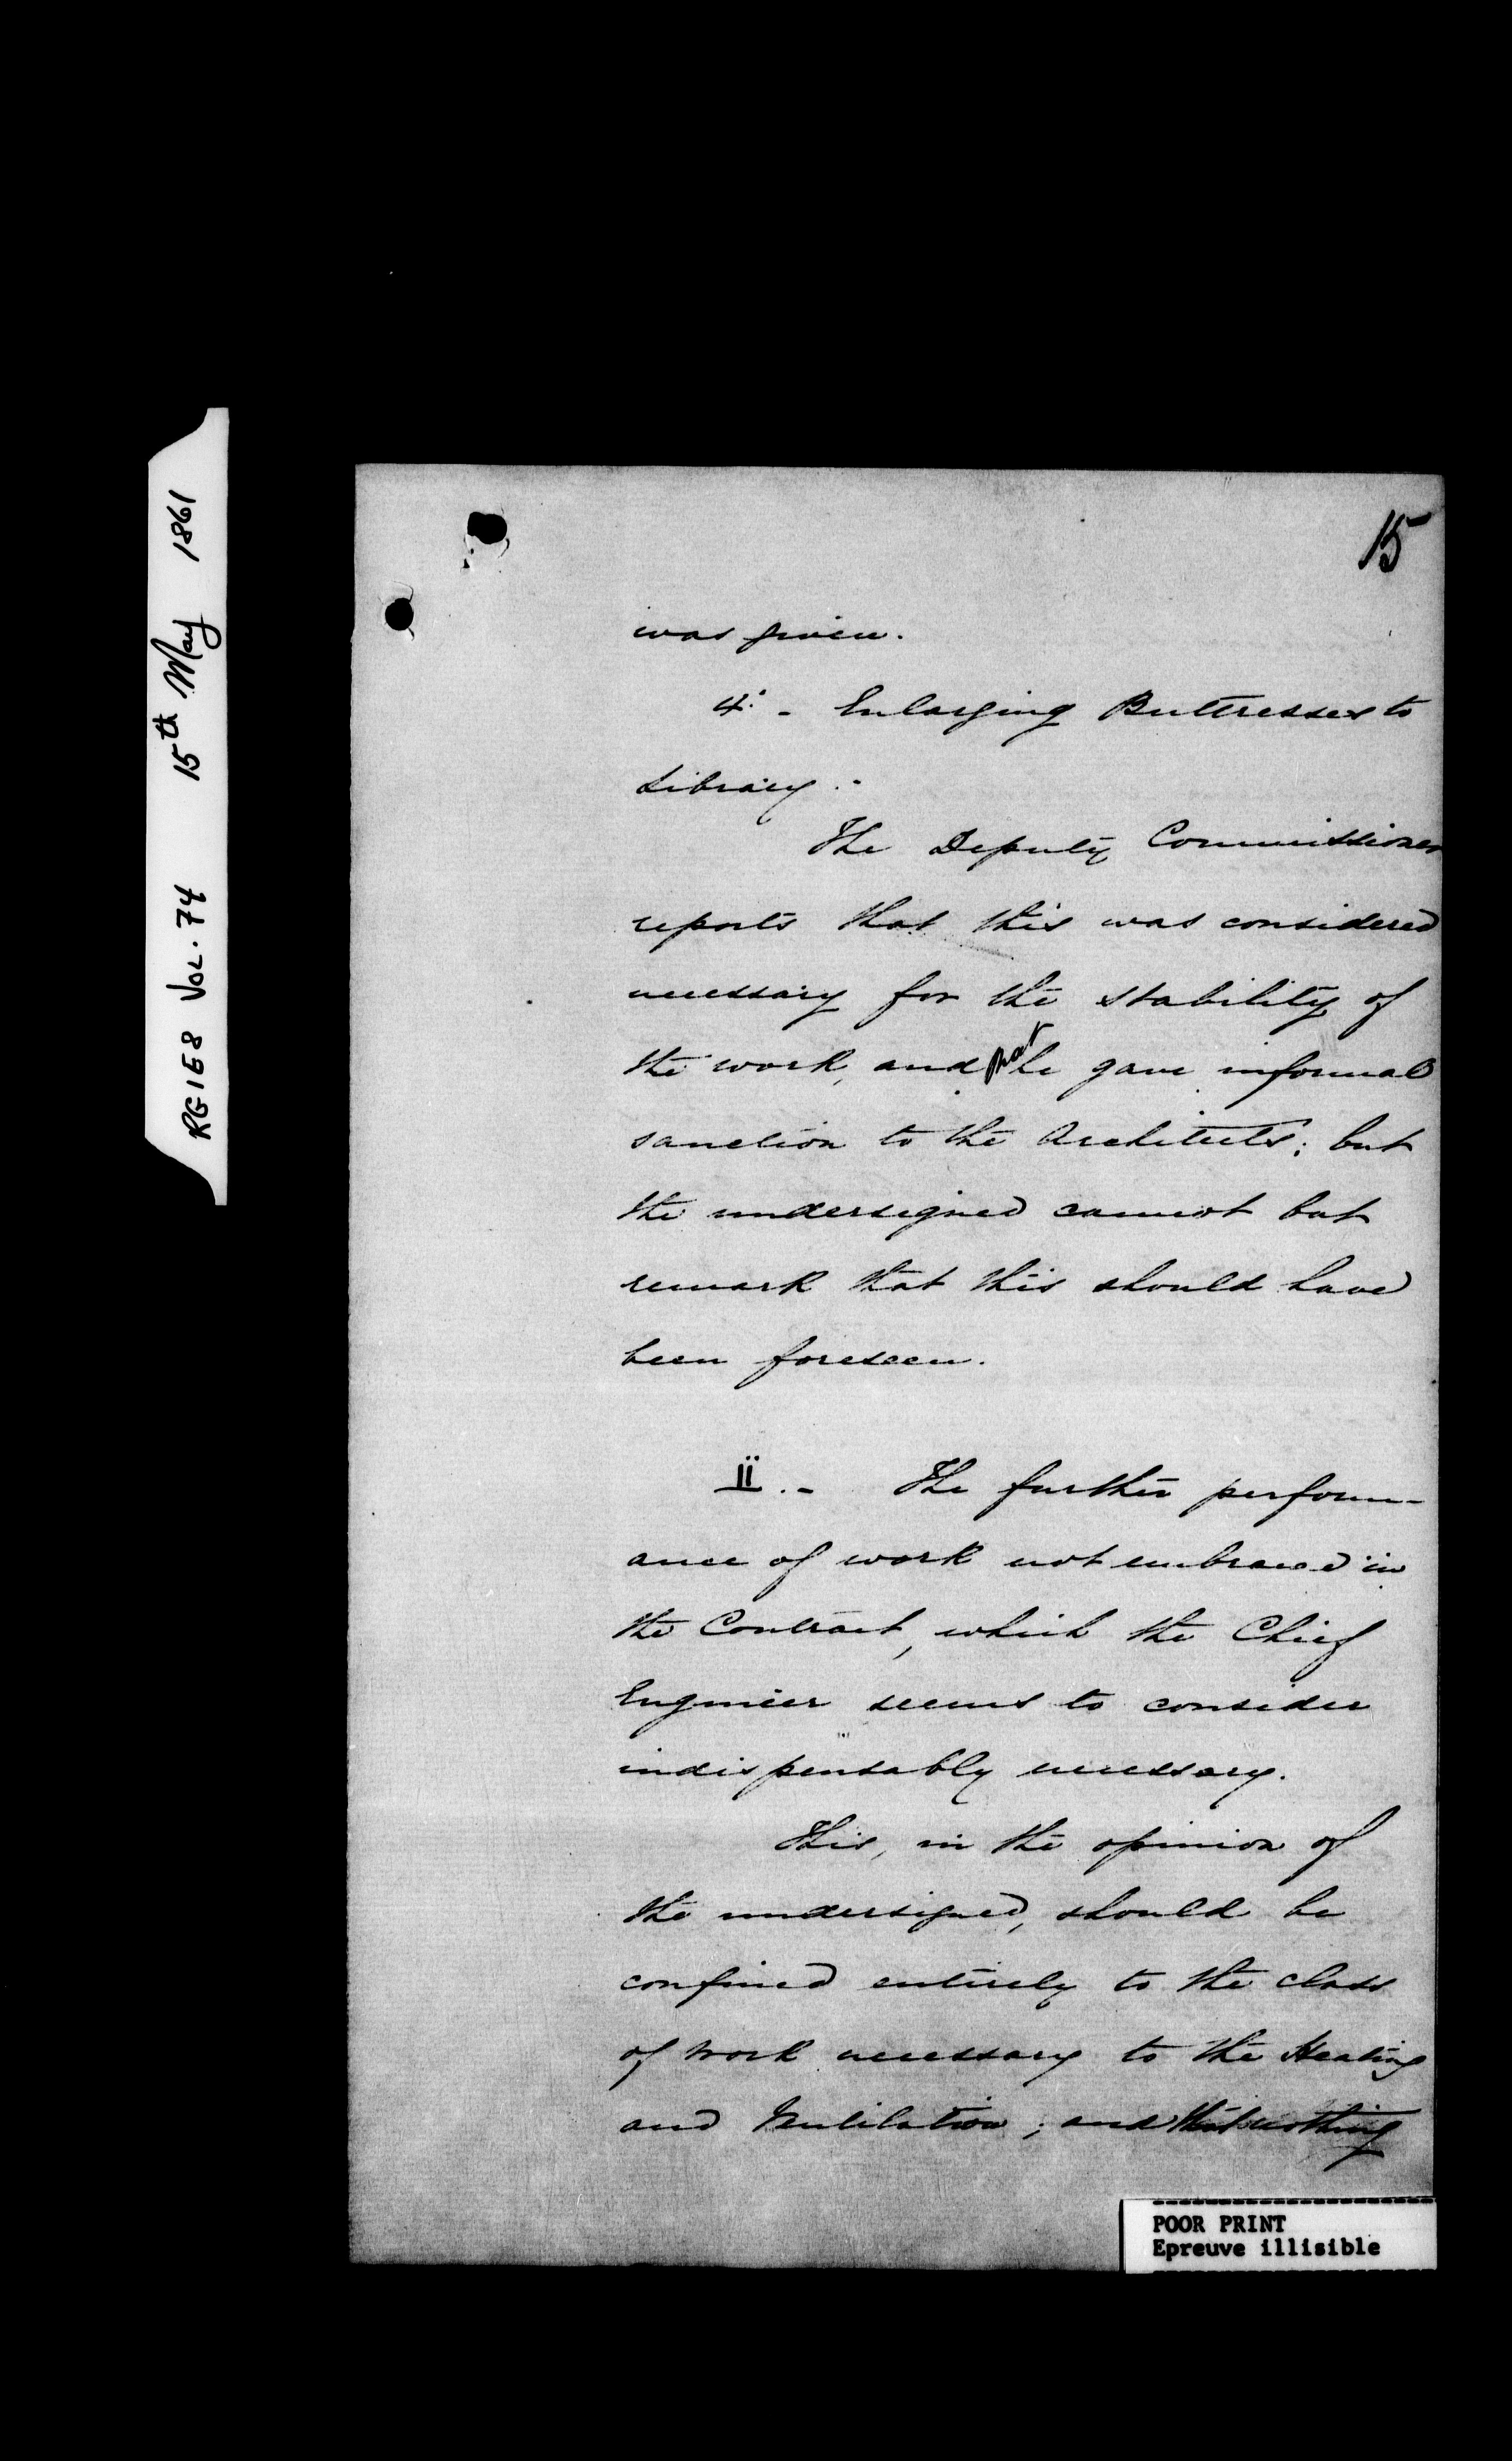 RG1E8 VOL. 74 15th May 1861
15
was given.
4. - Enlarging Buttresses to
Library.-
The Deputy Commissioner
reports that this was considered
necessary for the stability of
the work, and that he gave informal
sanction to the Architects; but
the undersigned cannot but
remark that this should have
been foreseen.
II.- The further perform-
ance of work not embraced in
the Contract, which the Chief
Engineer seems to consider
indispensably necessary.
This, in the opinion of
the undersigned, should be
confined entirely to the class
of work necessary to the Heating
and Ventilation; and that nothing
POOR PRINT
Epreuve illisible